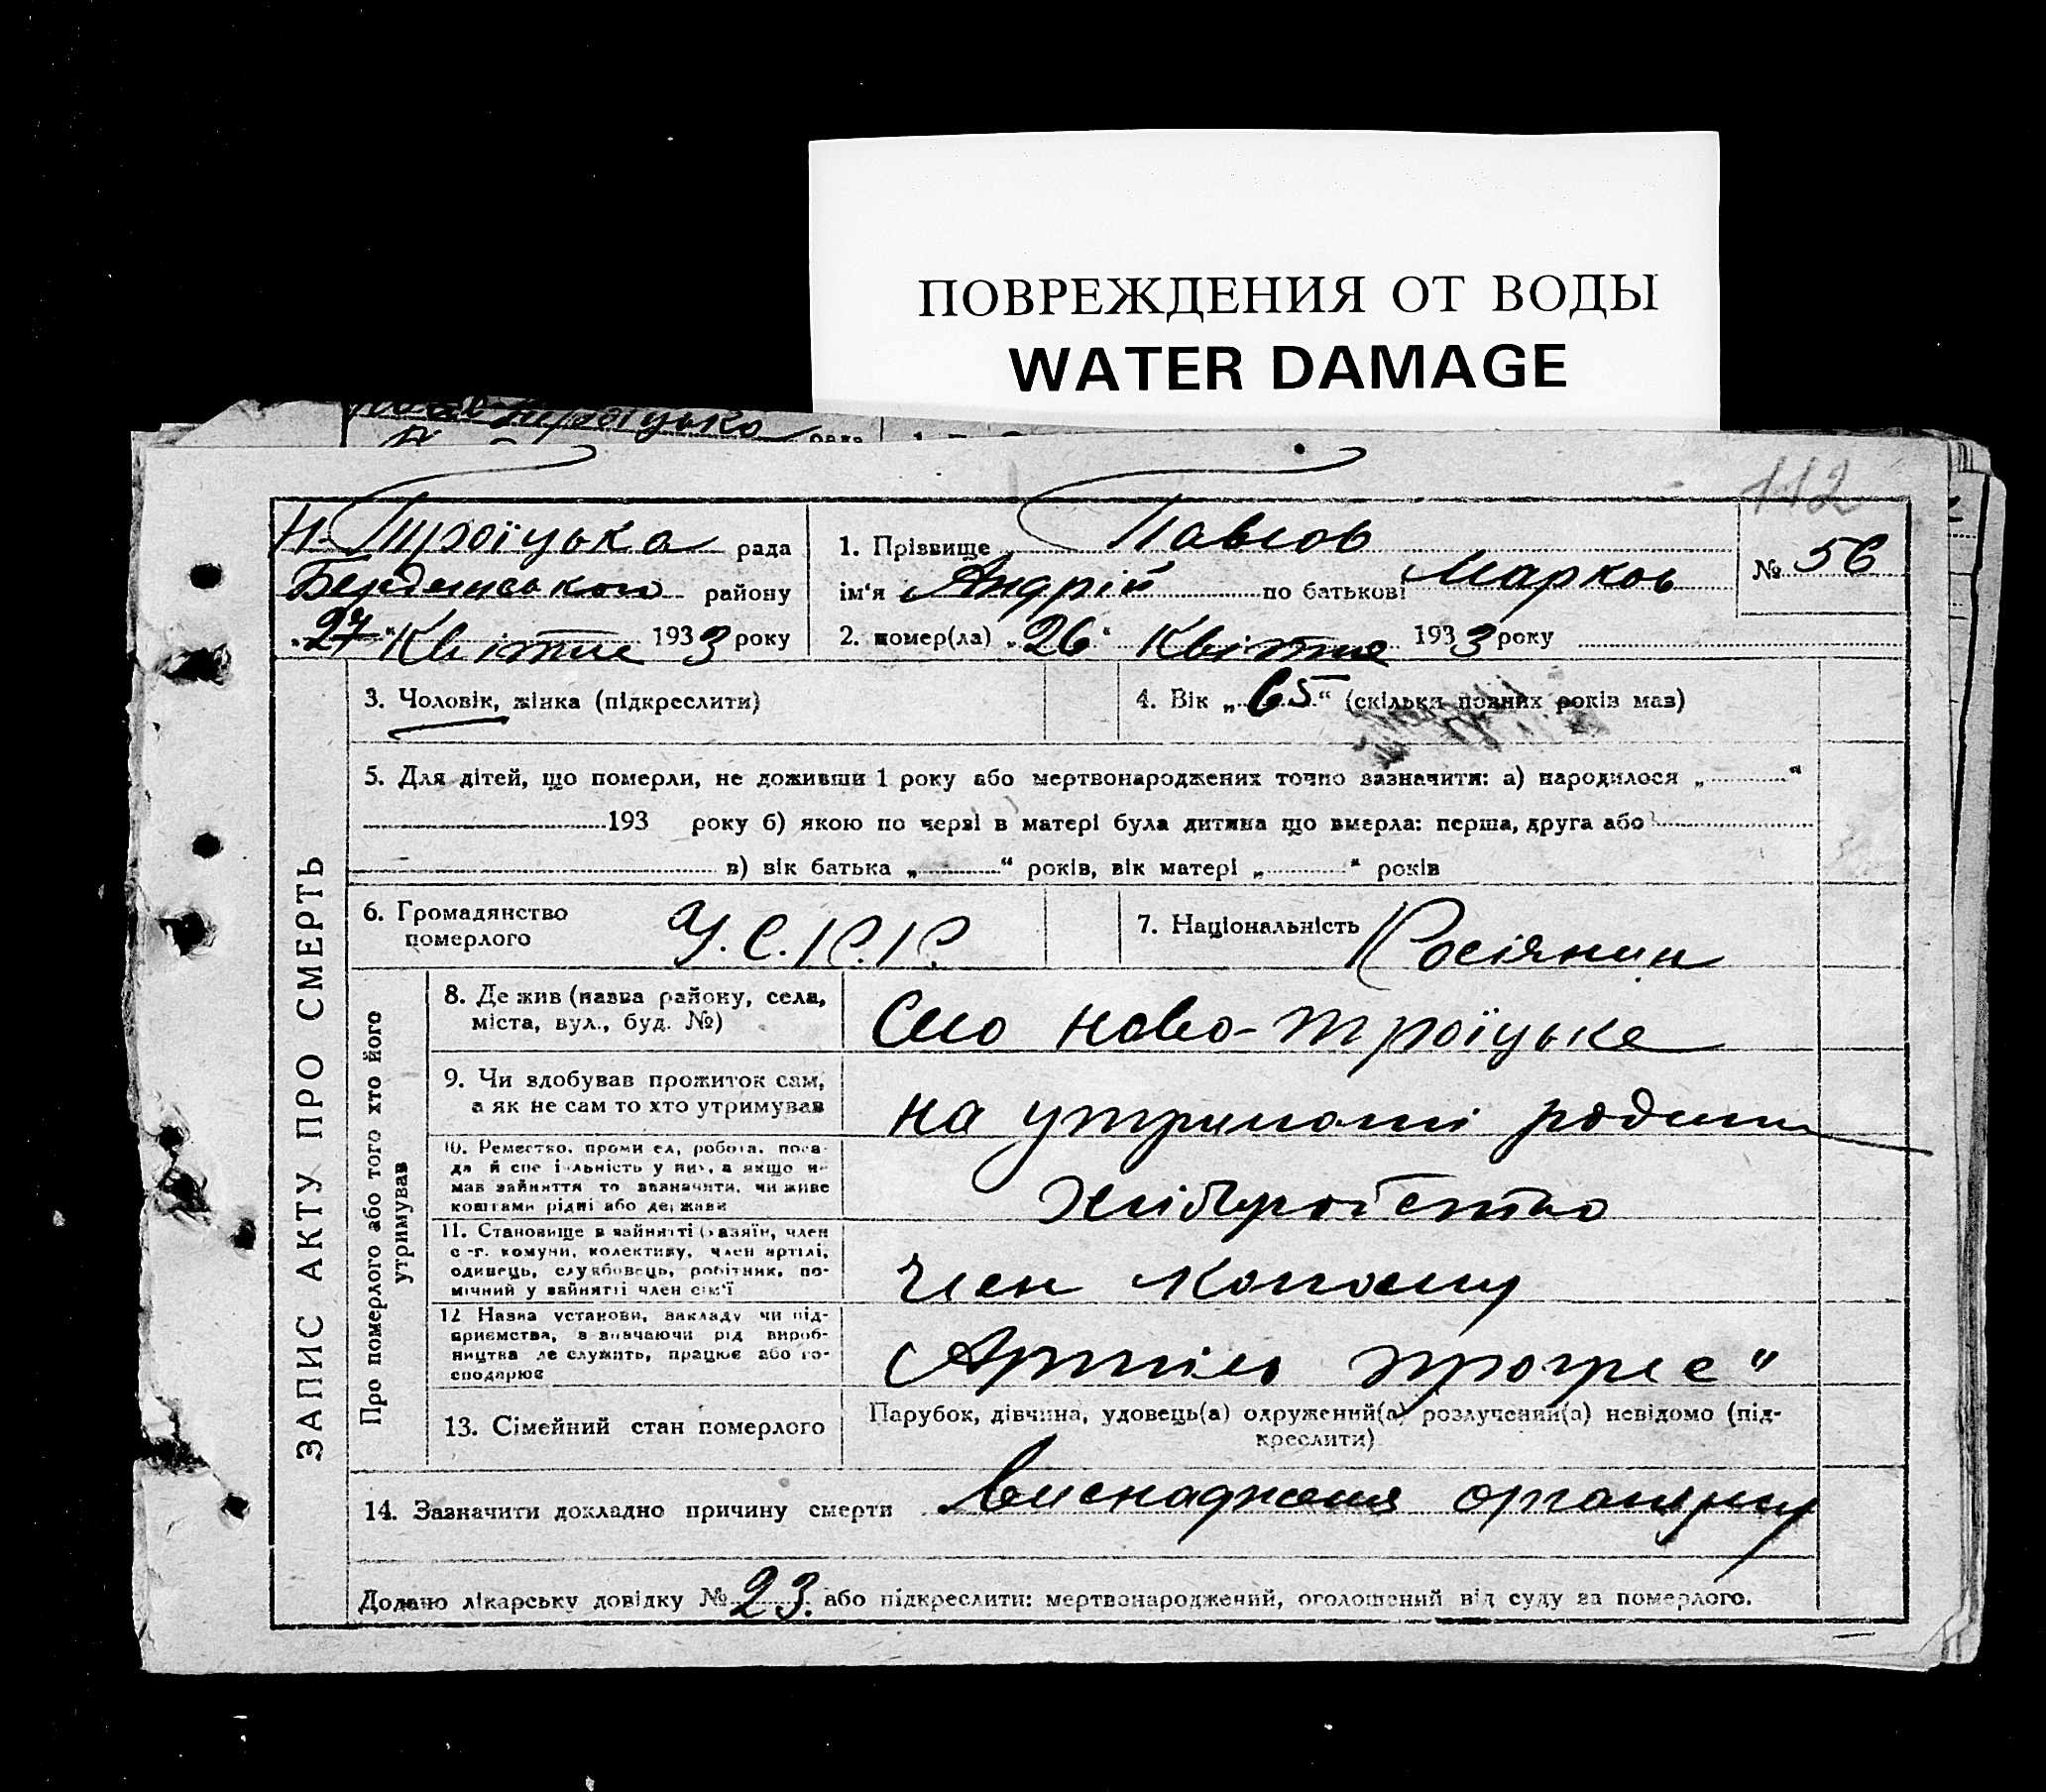 ПОВРЕЖДЕНИЯ ОТ ВОДЫ
WATER DAMAGE
рада
112
Н-Троїцька рада
Бердянського району
„27“ Квітня 1933 року
1. Прізвище Павлов
ім'я Андрій по батькові Марков
№ 56
2. помер(ла) „26“ Квітня 1933 року
ЗАПИС АКТУ ПРО СМЕРТЬ
3. Чоловік, жінка (підкреслити)
4. Вік „65“ (скільки повних років мав)
5. Для дітей, що померли, не доживши 1 року або мертвонароджених точно зазначити: а) народилося „ “
193 року б) якою по черзі в матері була дитина що вмерла: перша, друга або
в) вік батька „ “ років, вік матері „ “ років
6. Громадянство
померлого
У.С.Р.Р.
7. Національність Росіянин
Про померлого або того хто його
утримував
8. Де жив (назва району, села,
міста, вул., буд. №)
Село Ново-Троїцьке
9. Чи здобував прожиток сам,
а як не сам то хто утримував
на утриманні родини
10. Ремество, промисел, робота, поса-
да й спеціяльність у них, а якщо не
мав зайняття то зазначити, чи живе
коштами рідні або держави
Хліборобство
11. Становище в зайнятті (хазяїн, член
с-г. комуни, колективу, член артілі,
одинець, службовець, робітник, по-
мічний у зайнятті член сім'ї
член колгоспу
12. Назва установи, закладу чи під-
приємства, зазначаючи рід вироб-
ництва де служить, працює або го-
сподарює
Артіль прогрес"
13. Сімейний стан померлого
Парубок, дівчина, удовець(а) одружений(а) розлучений(а) невідомо (під-
креслити)
14. Зазначити докладно причину смерти виснаження організму
Додано лікарську довідку № 23. або підкреслити: мертвонароджений, оголошений від суду за померлого.